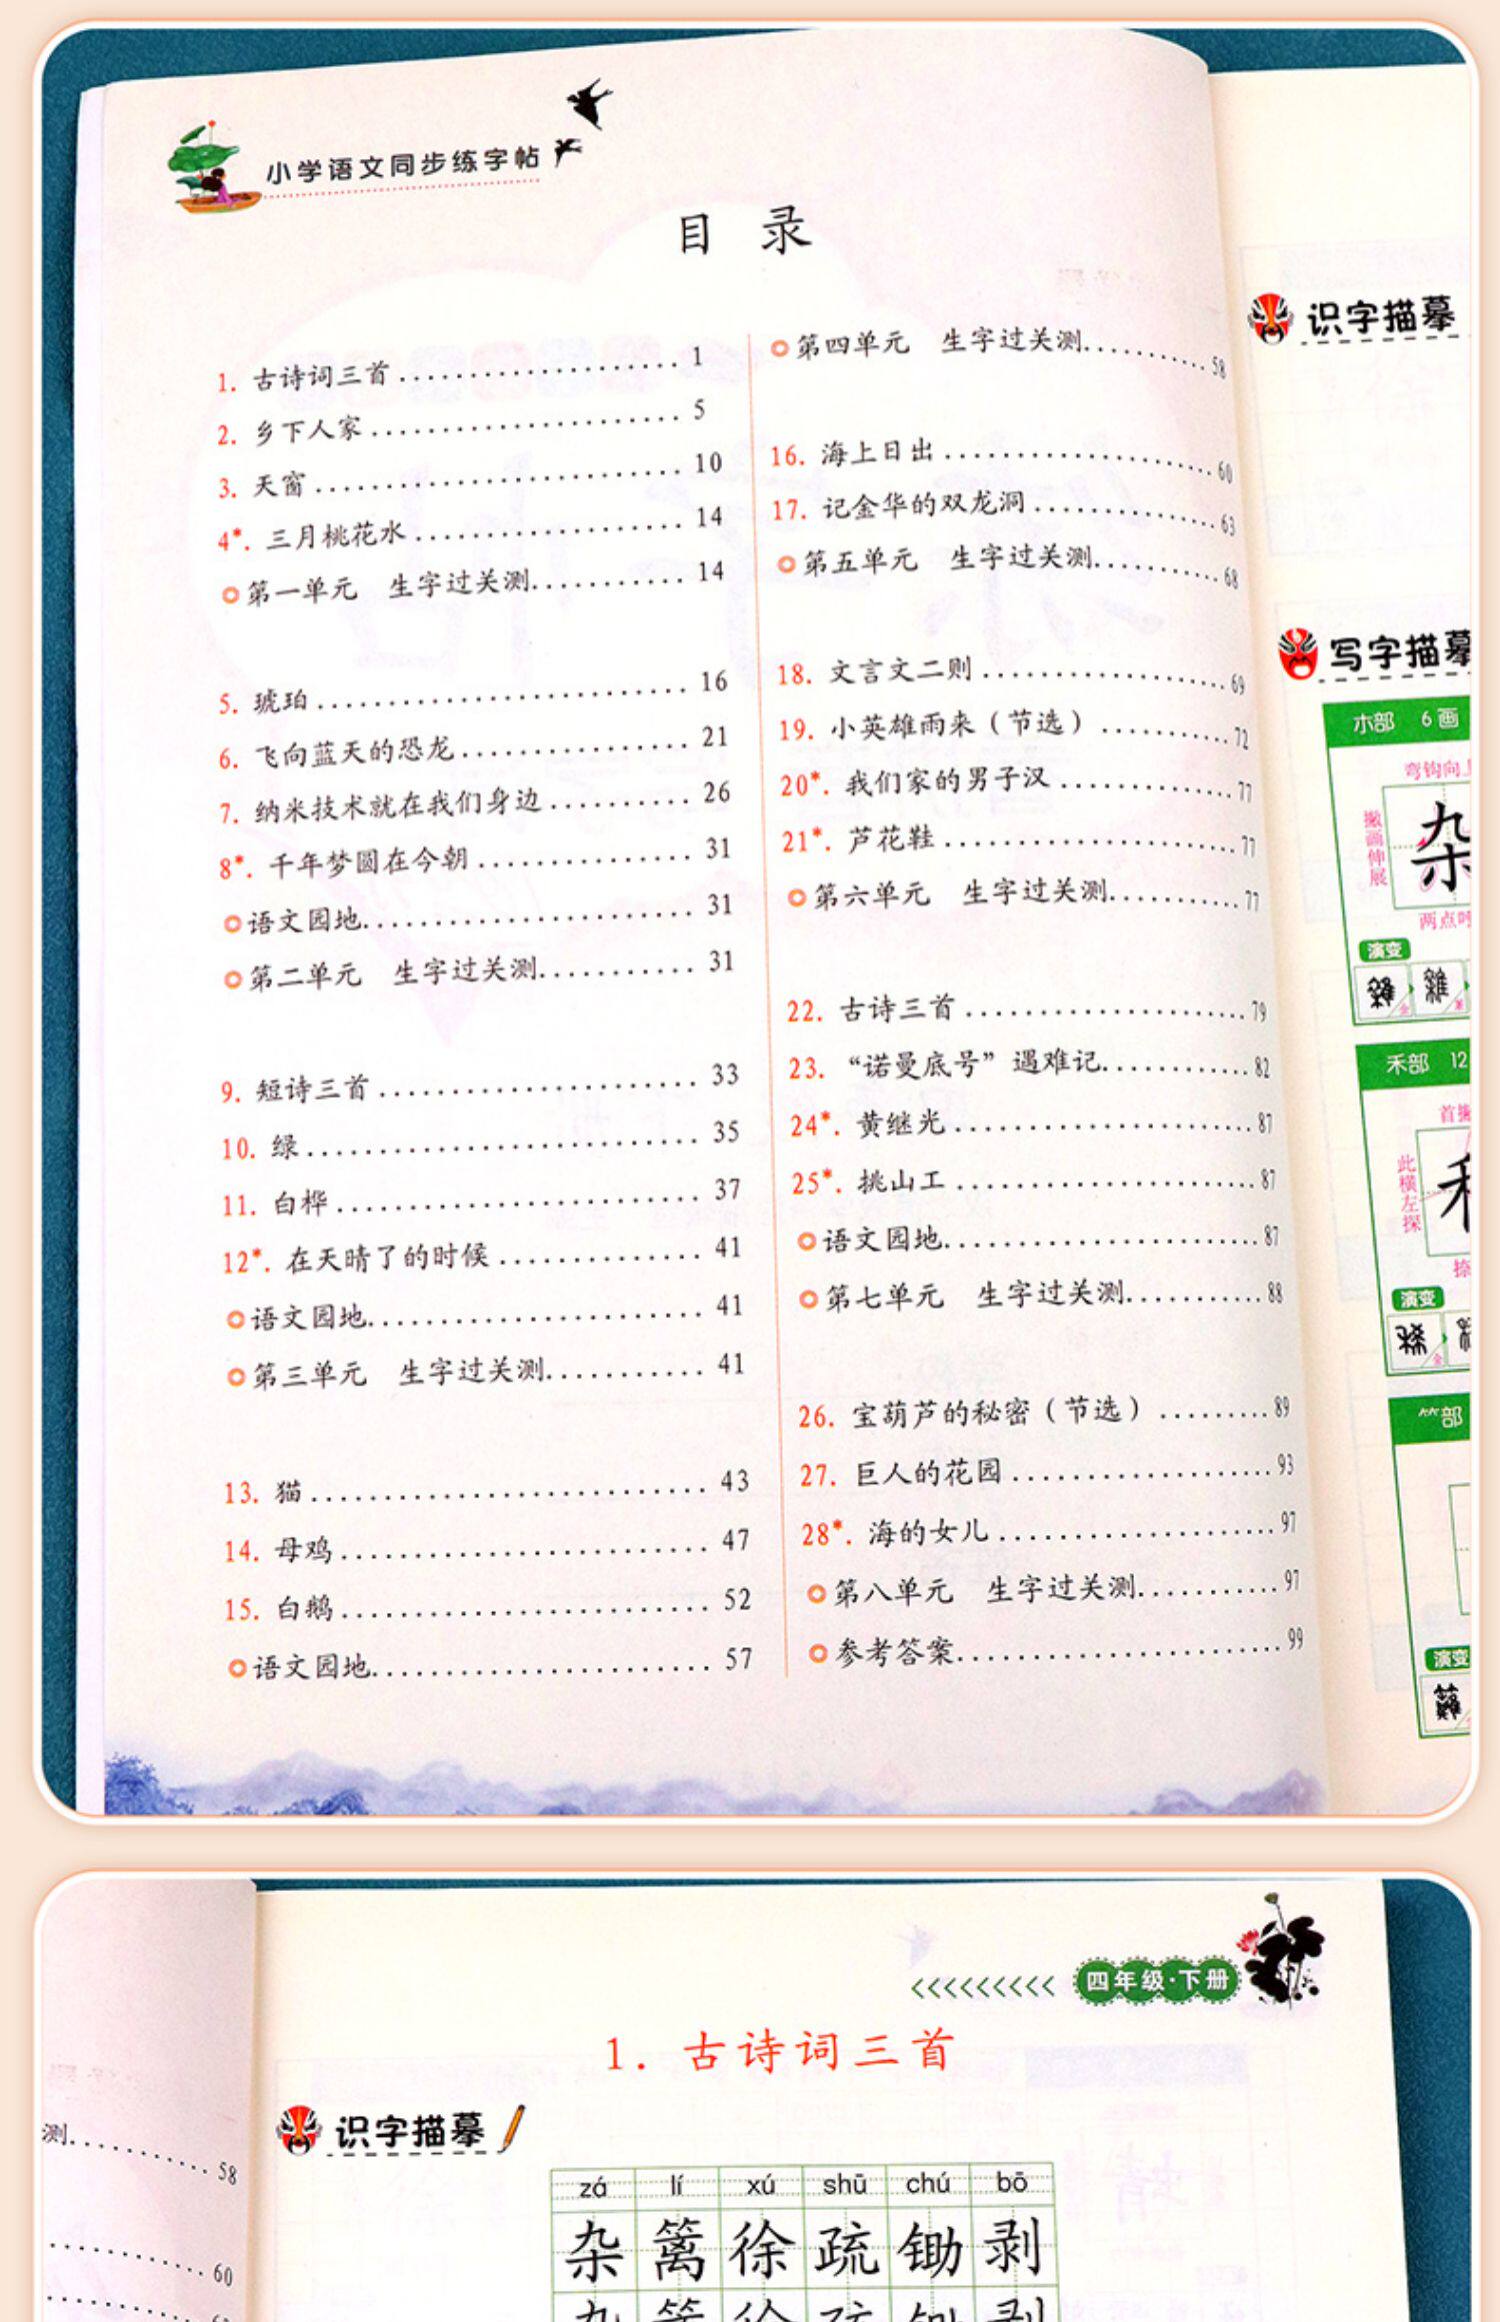 小学语文同步练字帖
目 录
1. 古诗词三首 .................... 1
2. 乡下人家 .................... 5
3. 天窗 .................... 10
4*. 三月桃花水 .................... 14
第一单元 生字过关测........... 14
5. 琥珀 .................... 16
6. 飞向蓝天的恐龙................ 21
7. 纳米技术就在我们身边.......... 26
8*. 千年梦圆在今朝............... 31
语文园地....................... 31
第二单元 生字过关测........... 31
9. 短诗三首...................... 33
10. 绿........................... 35
11. 白桦......................... 37
12*. 在天晴了的时候.............. 41
语文园地....................... 41
第三单元 生字过关测........... 41
13. 猫........................... 43
14. 母鸡......................... 47
15. 白鹅......................... 52
语文园地....................... 57
第四单元 生字过关测........... 58
16. 海上日出 .................... 60
17. 记金华的双龙洞.............. 63
第五单元 生字过关测........... 68
18. 文言文二则................... 69
19. 小英雄雨来（节选）.......... 72
20*. 我们家的男子汉............. 77
21*. 芦花鞋..................... 77
第六单元 生字过关测........... 77
22. 古诗三首 .................... 79
23. “诺曼底号”遇难记............ 82
24*. 黄继光..................... 87
25*. 挑山工 .................... 87
语文园地....................... 87
第七单元 生字过关测........... 88
26. 宝葫芦的秘密（节选）......... 89
27. 巨人的花园................... 93
28*. 海的女儿................... 97
第八单元 生字过关测........... 97
参考答案....................... 99
识字描摹
写字描摹
木部 6画
弯钩向
撇画伸展
杂
两点呼
演变
禾部 12
首撇
此横左探
捺
演变
⺮部
演变
四年级·下册
1. 古诗词三首
识字描摹
测.......... 58
.......... 60
zá lí xú shū chú bō
杂 篱 徐 疏 锄 剥